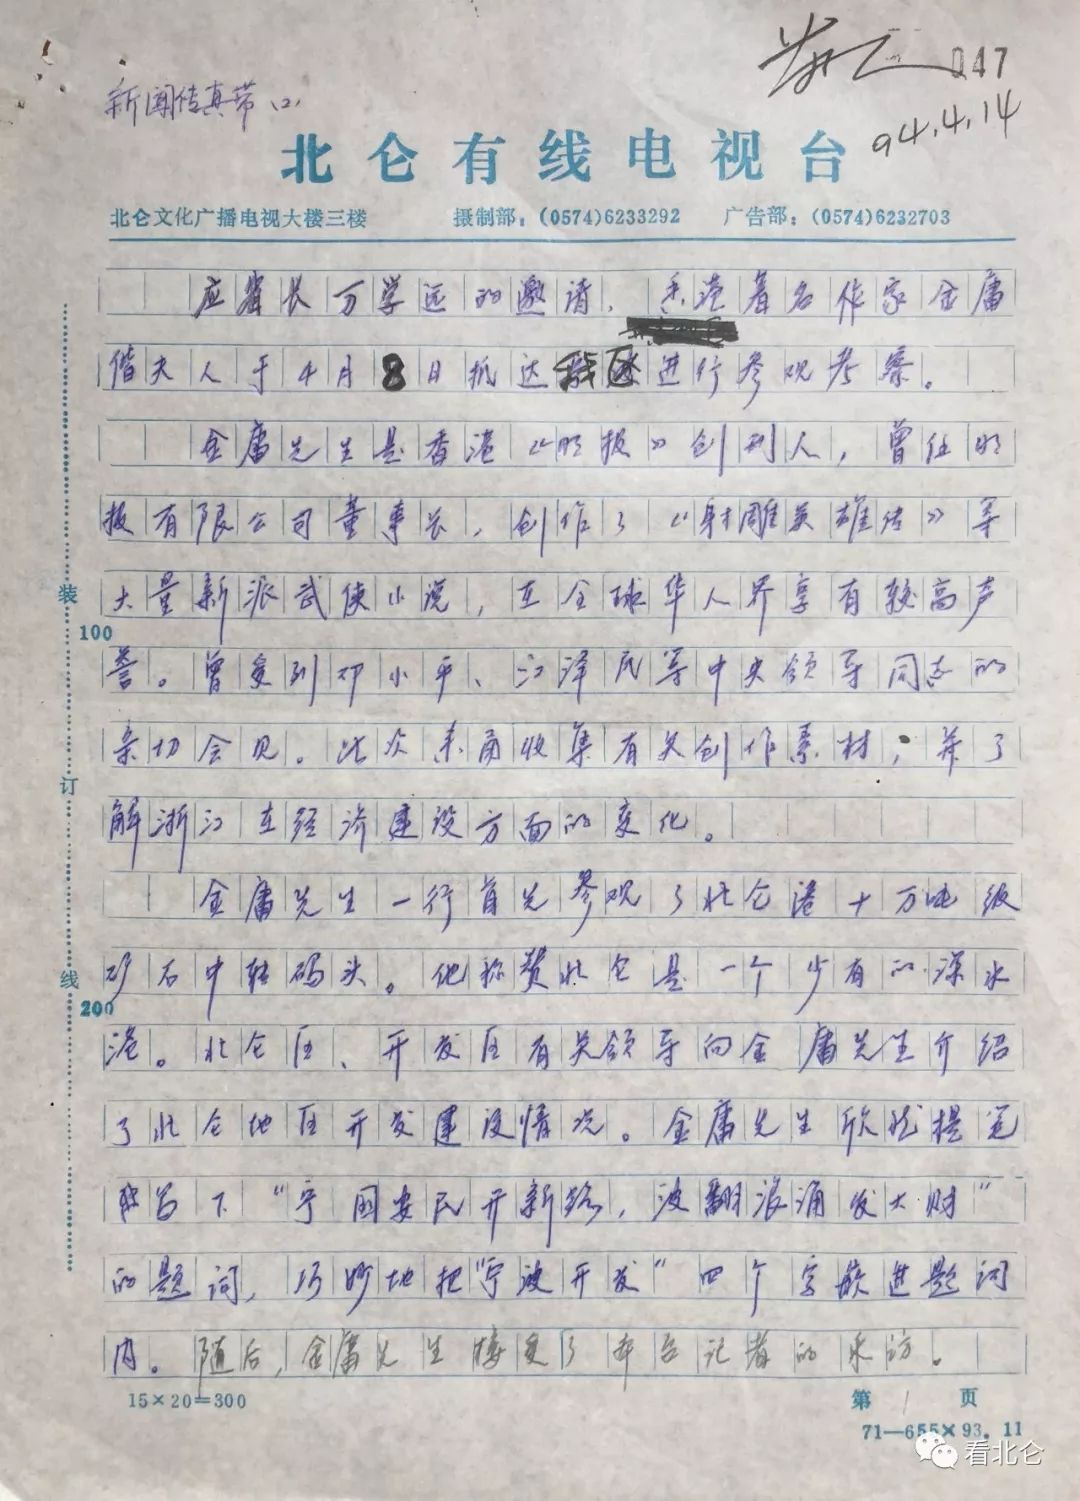 047
新闻传真带(2)
94.4.14
北仑有线电视台
北仑文化广播电视大楼三楼 摄制部：(0574)6233292 广告部：(0574)6232703
应省长万学远的邀请，香港著名作家金庸
偕夫人于4月8日抵达我区进行参观考察。
金庸先生是香港《明报》创刊人，曾任明
报有限公司董事长，创作了《射雕英雄传》等
大量新派武侠小说，在全球华人界享有较高声
誉。曾受到邓小平、江泽民等中央领导同志的
亲切会见。此次来甬收集有关创作素材，并了
解浙江在经济建设方面的变化。
金庸先生一行首先参观了北仑港十万吨级
矿石中转码头。他称赞北仑是一个少有的深水
港。北仑区、开发区有关领导向金庸先生介绍
了北仑地区开发建设情况。金庸先生欣然提笔
写下“宁国安民开新路，波翻浪涌发大财”
的题词，巧妙地把“宁波开发”四个字嵌进题词
内。随后，金庸先生接受了本台记者的采访。
装
订
线
100
200
15×20=300
第1页
71—655×93.11
看北仑